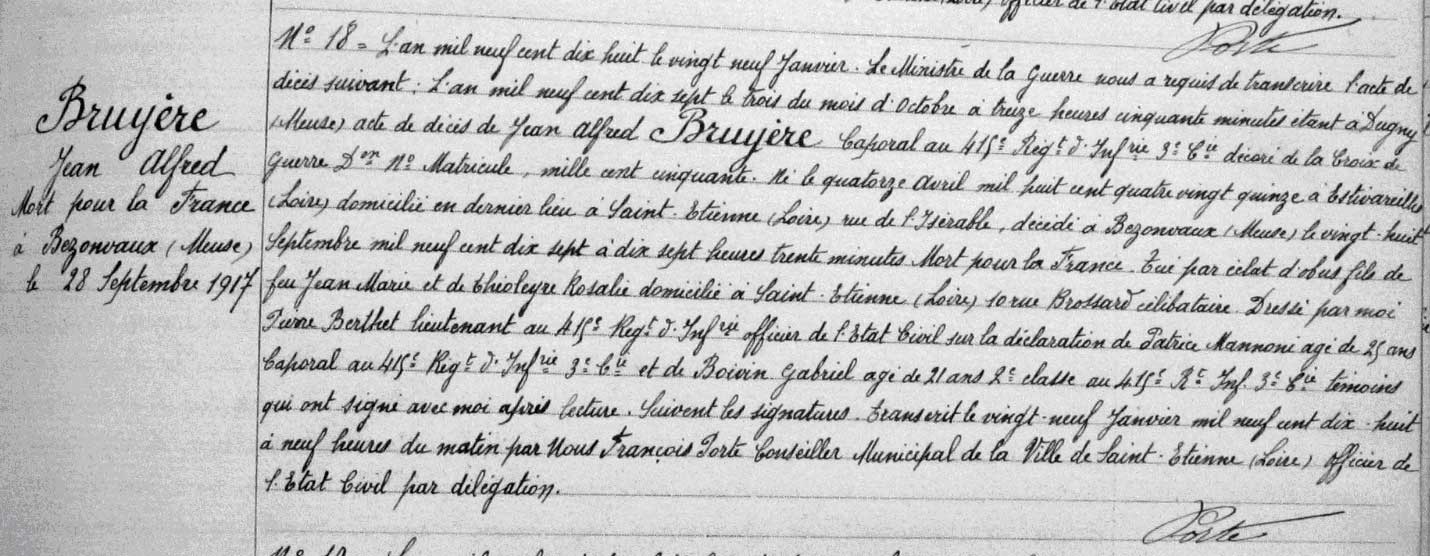 officier de l'Etat Civil par délégation.
Porte
Bruyère
Jean Alfred
Mort pour la France
à Bezonvaux (Meuse)
le 28 Septembre 1917
N° 18 = L'an mil neuf cent dix huit le vingt neuf Janvier. Le Ministre de la Guerre nous a requis de transcrire l'acte de
décès suivant : L'an mil neuf cent dix sept le trois du mois d'Octobre à treize heures cinquante minutes étant à Dugny
(Meuse) acte de décès de Jean Alfred Bruyère Caporal au 415e Régt d'Infrie 3e Cie décoré de la Croix de
Guerre Don No Matricule, mille cent cinquante. Né le quatorze Avril mil huit cent quatre vingt quinze à Estivareilles
(Loire) domicilié en dernier lieu à Saint-Etienne (Loire) rue de l'Isérable, décédé à Bezonvaux (Meuse) le vingt-huit
Septembre mil neuf cent dix sept à dix sept heures trente minutes Mort pour la France. Tué par éclat d'obus fils de
feu Jean Marie et de Théoleyre Rosalie domicilié à Saint-Etienne (Loire) 10 rue Brossard célibataire. Dressé par moi
Pierre Berthet lieutenant au 415e Régt d'Infrie officier de l'Etat Civil sur la déclaration de Patrice Mannoni agé de 25 ans
Caporal au 415e Régt d'Infrie 3e Cie et de Boivin Gabriel agé de 21 ans 2e classe au 415e Rt Inf. 3e Cie témoins
qui ont signé avec moi après lecture. Suivent les signatures. Transcrit le vingt-neuf Janvier mil neuf cent dix-huit
à neuf heures du matin par Nous François Porte Conseiller Municipal de la Ville de Saint-Etienne (Loire) officier de
l'Etat Civil par délégation.
Porte